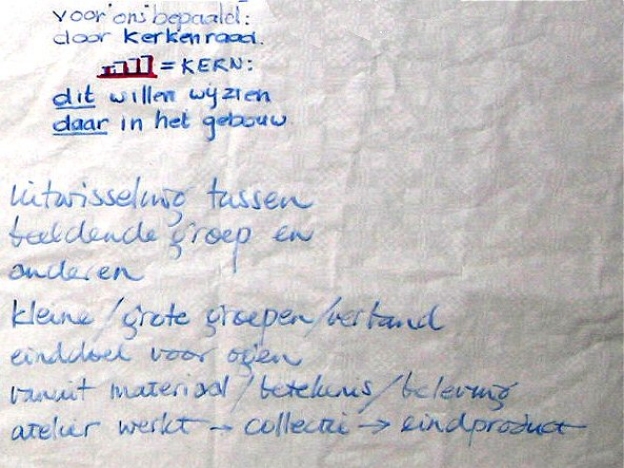 voor ons bepaald:
door kerkenraad.
= KERN:
dit willen wij zien
daar in het gebouw
uitwisseling tussen
beeldende groep en
anderen
kleine / grote groepen / verband
einddoel voor ogen
vanuit materiaal / betekenis / beleving
atelier werkt → collectie → eindproduct